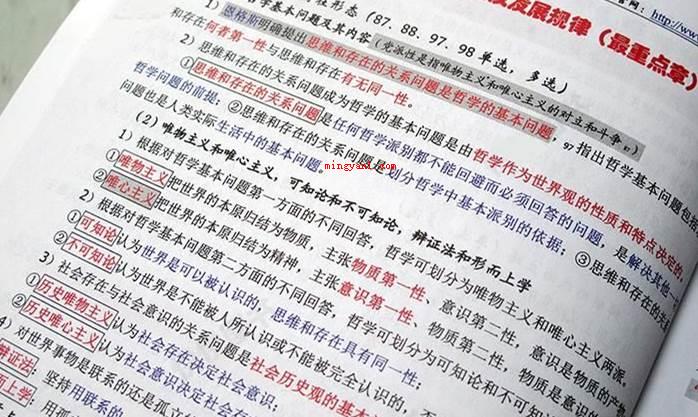 发展规律（最重点章）
http://www
形态（87、88、97、98 单选，多选）
学基本问题及其内容（党派性是指唯物主义和唯心主义的对立和斗争。）
1）恩格斯明确提出思维和存在的关系问题是哲学的基本问题，97 指出哲学基本问题包括
和存在何者第一性与思维和存在有无同一性。
2）思维和存在的关系问题成为哲学的基本问题是由哲学作为世界观的性质和特点决定的。
①思维和存在的关系问题是任何哲学派别都不能回避而必须回答的问题，是解决其他一
哲学问题的前提；②思维和存在的关系问题是划分哲学中基本派别的依据；③思维和存在的关
问题也是人类实际生活中的基本问题。
mingyanl.com
（2）唯物主义和唯心主义，可知论和不可知论，辩证法和形而上学
1）根据对哲学基本问题第一方面的不同回答，哲学可划分为唯物主义和唯心主义两派。
①唯物主义把世界的本原归结为物质，主张物质第一性、意识第二性，意识是物质的产物
②唯心主义把世界的本原归结为精神，主张意识第一性、物质第二性，物质是意识的
2）根据对哲学基本问题第二方面的不同回答，哲学可划分为可知论和不可知
①可知论认为世界是可以被认识的，思维和存在具有同一性；
②不可知论认为世界是不能被人所认识或不能被完全认识的，否
3）社会存在与社会意识的关系问题是社会历史观的基本
①历史唯物主义认为社会存在决定社会意识；
②历史唯心主义认为社会意识决定社会存
4）对世界事物是联系的还是孤立
辩证法：坚持用联系的
而上学：用孤